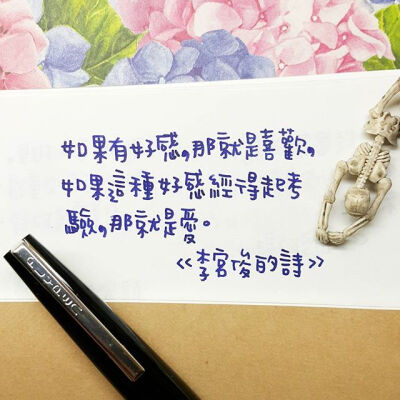 如果有好感,那就是喜歡,
如果這種好感經得起考
驗,那就是愛。
<<李宮俊的詩>>